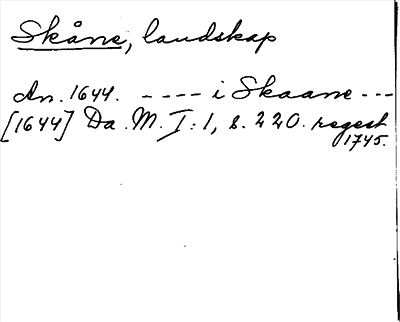 Skåne, landskap
An. 1644. ---- i Skaane ---
[1644] Da. M. I: 1, s. 220. regest
1745.